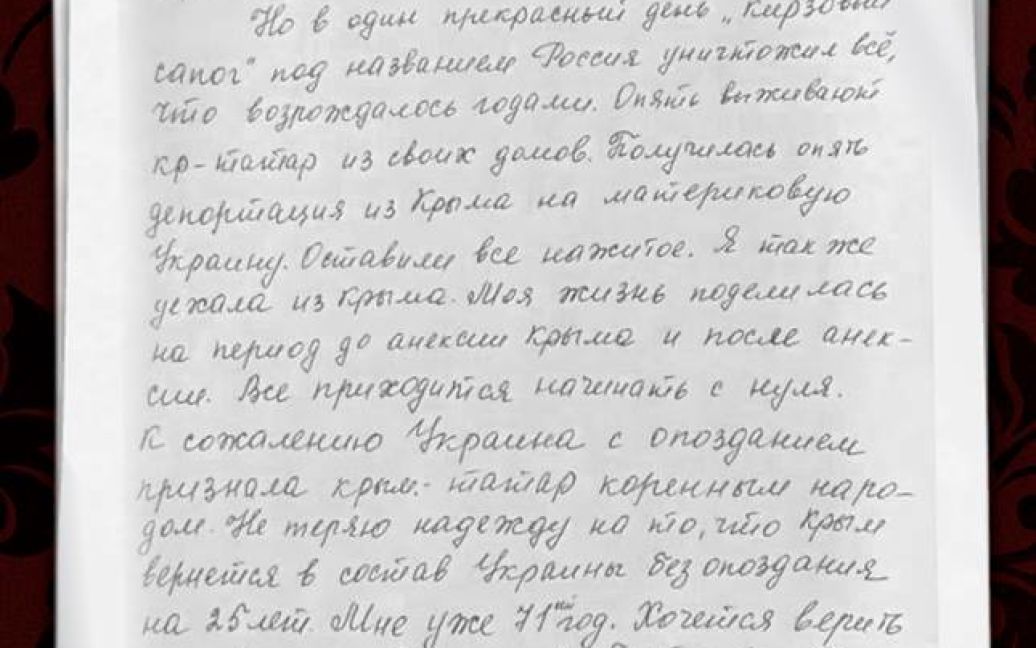 Но в один прекрасный день „кирзовый
сапог“ под названием Россия уничтожил всё,
что возрождалось годами. Опять выживают
кр-татар из своих домов. Получилась опять
депортация из Крыма на материковую
Украину. Оставили все нажитое. Я так же
уехала из Крыма. Моя жизнь поделилась
на период до анексии Крыма и после анек-
сии. Все приходится начинать с нуля.
К сожалению Украина с опозданием
признала крым.-татар коренным наро-
дом. Не теряю надежду на то, что Крым
вернется в состав Украины без опоздания
на 25 лет. Мне уже 71ый год. Хочется верить